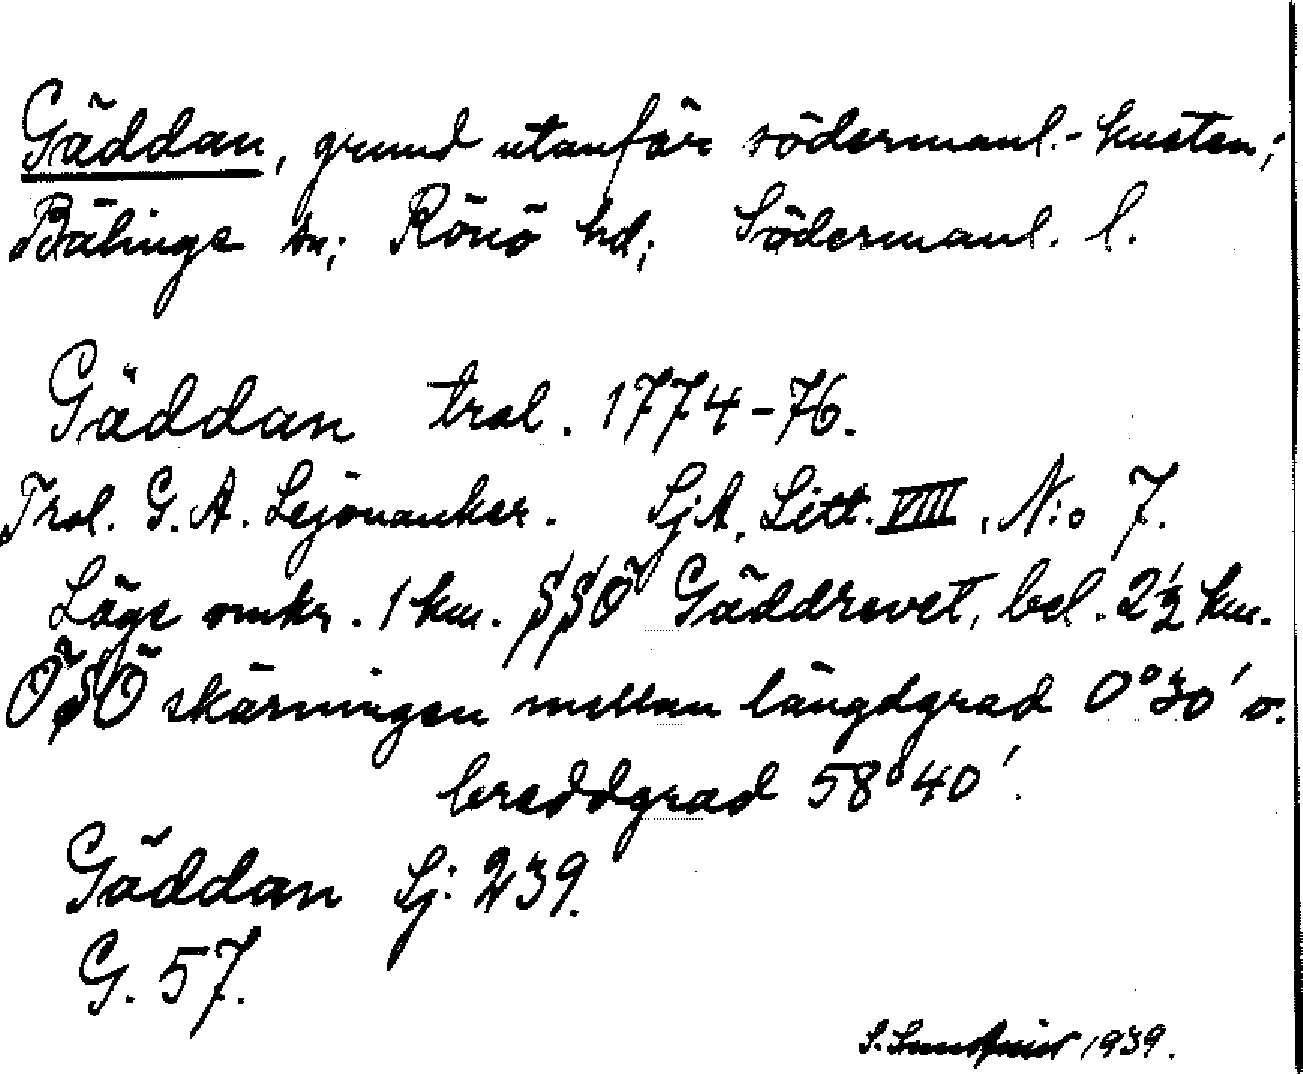 Gäddan, grund utanför södermanl.-kusten;
Bälinge sn; Rönö hd; Södermanl. l.
Gäddan tral. 1774-76.
Trol. G. A. Lejonanker. SjA. Litt. VIII, N:o 7.
Läge omkr. 1 km. SSÖ Gäddrevet, bel. 2½ km.
ÖSÖ skärningen mellan längdgrad 0°30' o.
breddgrad 58°40'.
Gäddan Sj: 239.
G. 57.
S. 1939.